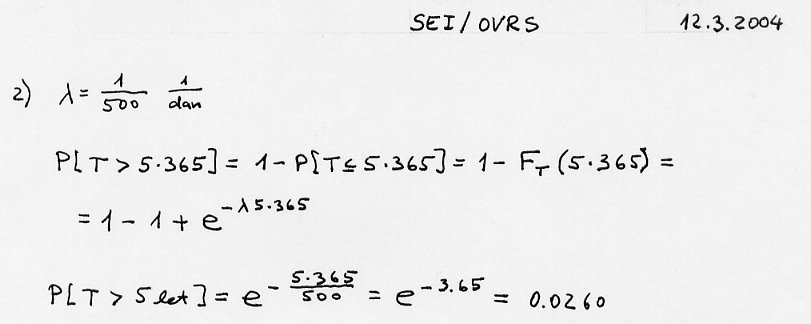 SEI/OVRS 12.3.2004
2) λ = 1/500 1/dan
P[T > 5·365] = 1 - P[T ≤ 5·365] = 1 - F_T (5·365) =
= 1 - 1 + e^{-λ5·365}
P[T > 5 let] = e^{-5·365/500} = e^{-3.65} = 0.0260